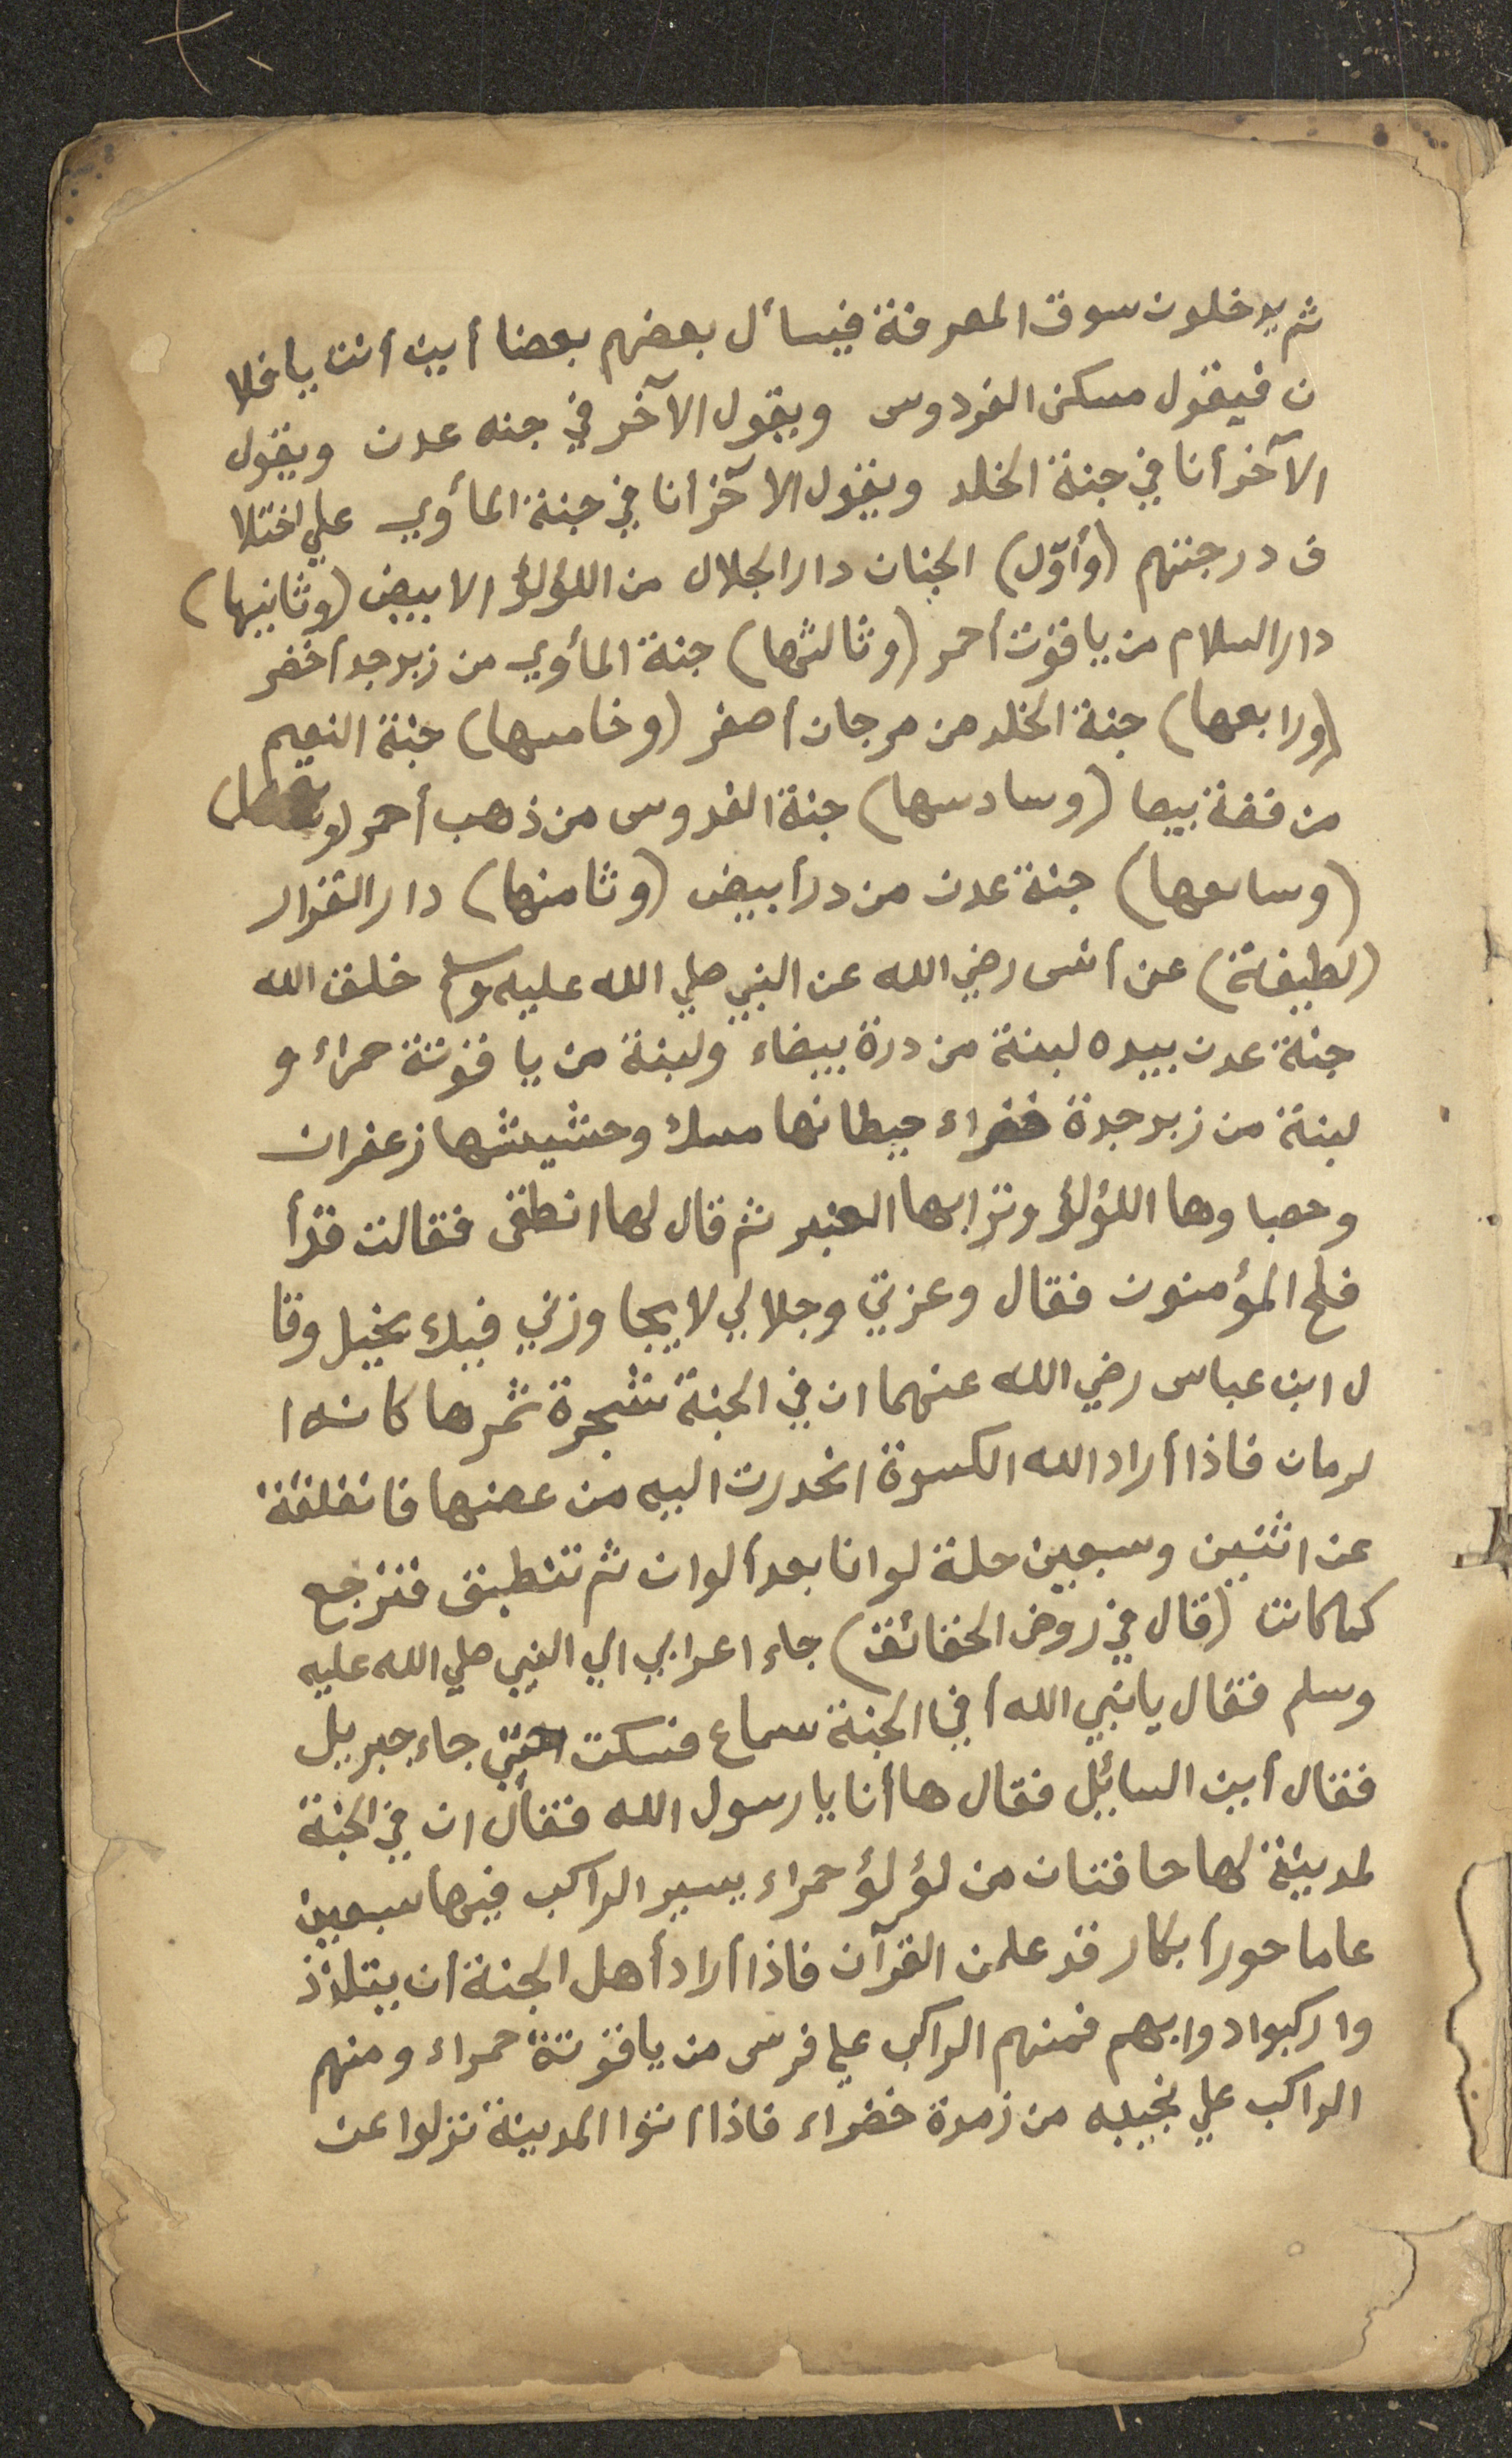 ثم يدخلون سوق المعرفة فيسأل بعضهم بعضا أين أنت يا فلا
ن فيقول مسكن الفردوس ويقول الآخر في جنه عدن ويقول
الآخر أنا في جنة الخلد ويقول الآخر أنا في جنة المأوي علي اختلا
ف درجتهم (وأوّل) الجنان دار الجلال من اللؤلؤ الابيض (وثانيها)
دار السلام من ياقوت أحمر (وثالثها) جنة المأوي من زبرجد أخضر
(ورابعها) جنة الخلد من مرجان أصفر (وخامسها) جنة النعيم
من فضة بيضا (وسادسها) جنة الفدوس من ذهب أحمر
(وسابعها) جنة عدن من در أبيض (وثامنها) دار القرار
(لطيفة) عن أنس رضي الله عن النبي صلي الله عليه وسلم خلق الله
جنة عدن بيده لبنة من درة بيضاء ولبنة من ياقوتة حمراء و
لبنة من زبرجدة خضراء حيطانها مسك وحشيشها زعفران
وحصباوها اللؤلؤ وترابها العنبر ثم قال لها انطقى فقالت قد أ
فلح المؤمنون فقال وعزتي وجلالي لا يجاوزني فيك بخيل وقا
ل ابن عباس رضي الله عنهما ان في الجنة شجرة ثمرها كانه ا
لرمان فاذا أراد الله الكسوة انحدرت اليه من غصنها فانفلقة
عن اثنين وسبعين حلة لوانا بعد ألوان ثم تنطبق فترجع
كما كانت (قال في روض الحقائق) جاء اعرابي الي النبي صلي الله عليه
وسلم فقال يا نبي الله أ في الجنة سماع فسكت حتي جاء جبريل
فقال أين السائيل فقال ها أنا يا رسول الله فقال ان في الجنة
لمدينة لها حافتان من لؤلؤ حمراء يسير الراكب فيها سبعين
عاما حور أبكار قد علمن القرآن فاذا أراد أهل الجنة أن يتلذذ
وا ركبوا دوابهم فمنهم الراكب علي فرس من ياقوتة حمراء ومنهم
الراكب علي نجيبه من زمردة خضراء فاذا اتوا المدينة نزلوا عن